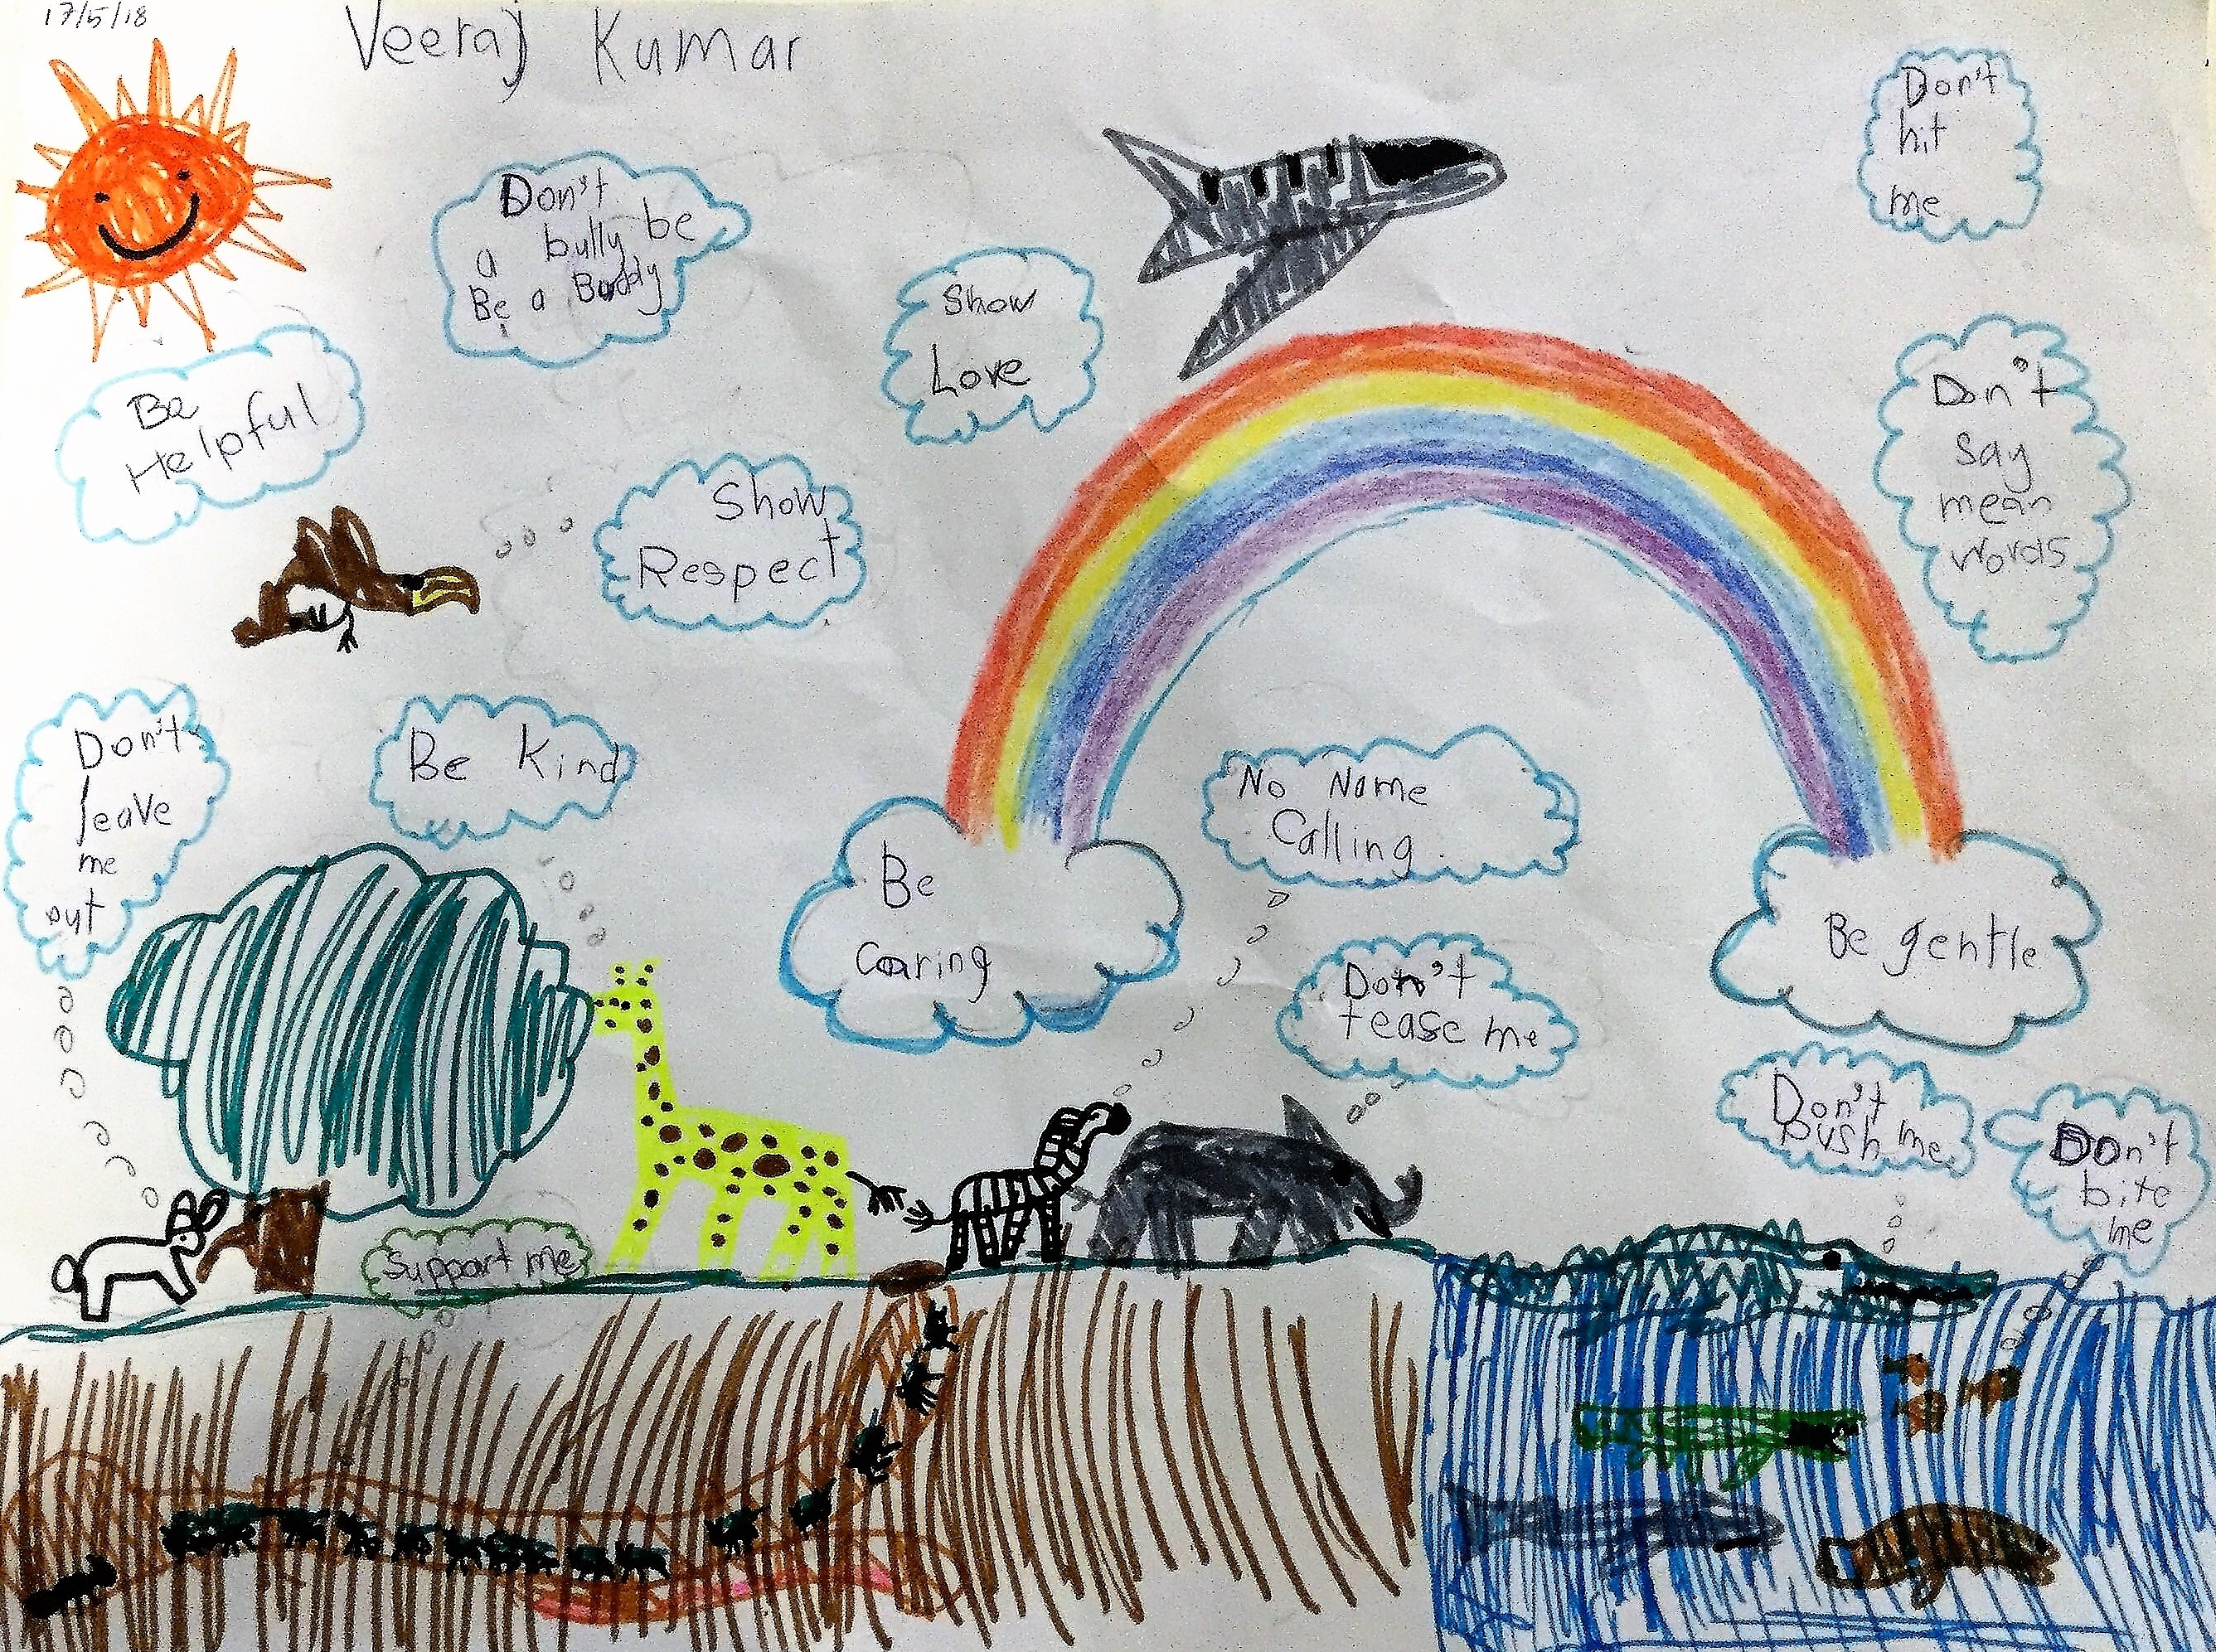 17/5/18
Veeraj Kumar
Don't
hit
me
Don't
a bully be
Be a Buddy
Show
Love
Be
Helpful
Don't
say
mean
words
Show
Respect
Don't
leave
me
out
Be Kind
No Name
Calling
Be
Caring
Be gentle
Don't
tease me
Don't
push me
Don't
bite
me
Support me